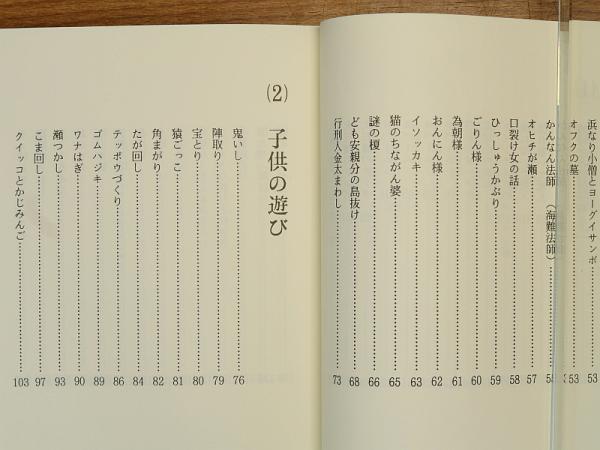 浜なり小僧とヨーグイサンボ……53
オフクの墓……53
かんなん法師（海難法師）……55
オヒチが瀬……57
口裂け女の話……58
ひっしゅうかぶり……59
ごりん様……60
為朝様……61
おんにん様……62
イソッカキ……63
猫のちながん婆……65
謎の榎……66
ども安親分の島抜け……68
行刑人金太まわし……73
(2) 子供の遊び
鬼いし……76
陣取り……79
宝とり……80
猿ごっこ……81
角まがり……82
たが回し……84
テッポウづくり……86
ゴムハジキ……89
ワナはぎ……90
瀬つかし……93
こま回し……97
クイッコとかじみんご……103